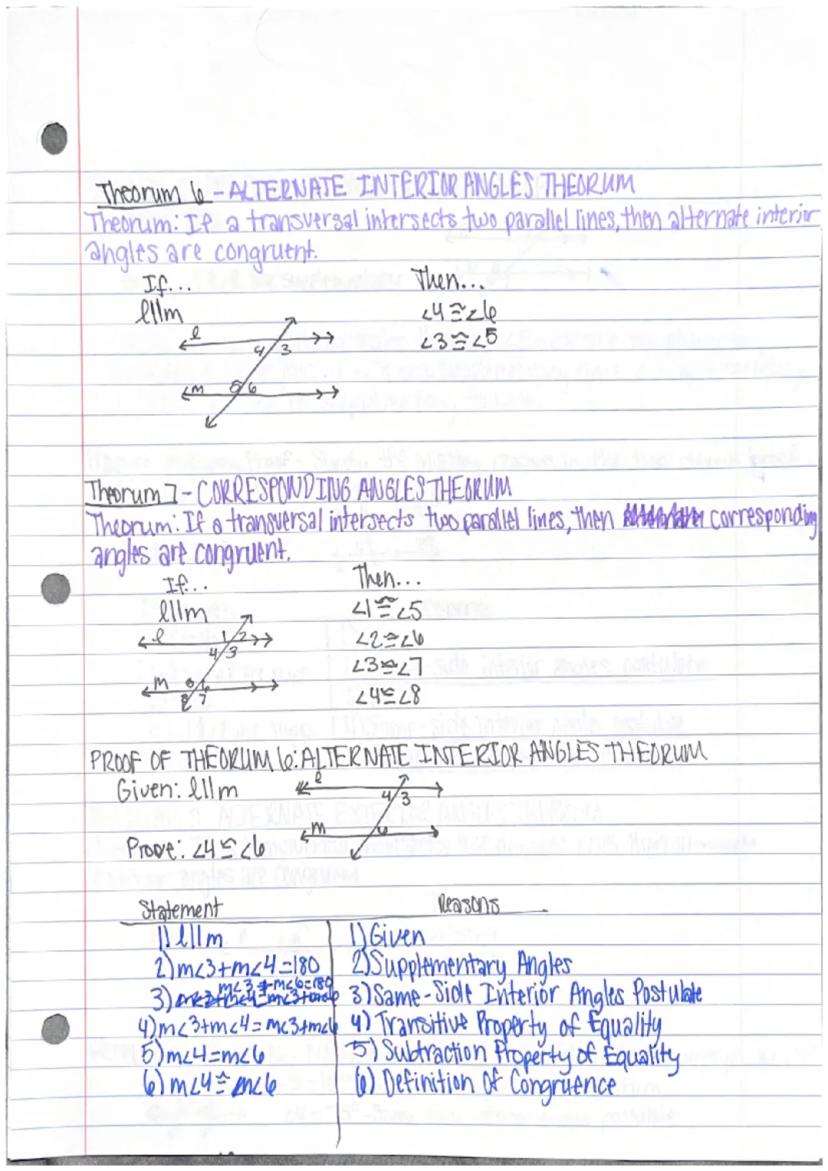 Theorum 6 - ALTERNATE INTERIOR ANGLES THEORUM
Theorum: If a transversal intersects two parallel lines, then alternate interior
angles are congruent.
If... Then...
l||m ∠4≅∠6
∠3≅∠5
l
4 3
m 5 6
Theorum 7 - CORRESPONDING ANGLES THEORUM
Theorum: If a transversal intersects two parallel lines, then corresponding
angles are congruent.
If... Then...
l||m ∠1≅∠5
l 1 2 ∠2≅∠6
4 3 ∠3≅∠7
m ∠4≅∠8
8 7
PROOF OF THEORUM 6: ALTERNATE INTERIOR ANGLES THEORUM
Given: l||m
l
4 3
m 6
Prove: ∠4≅∠6
Statement Reasons
1) l||m 1) Given
2) m∠3+m∠4=180 2) Supplementary Angles
3) m∠3+m∠6=180 3) Same-Side Interior Angles Postulate
4) m∠3+m∠4=m∠3+m∠6 4) Transitive Property of Equality
5) m∠4=m∠6 5) Subtraction Property of Equality
6) m∠4≅m∠6 6) Definition Of Congruence